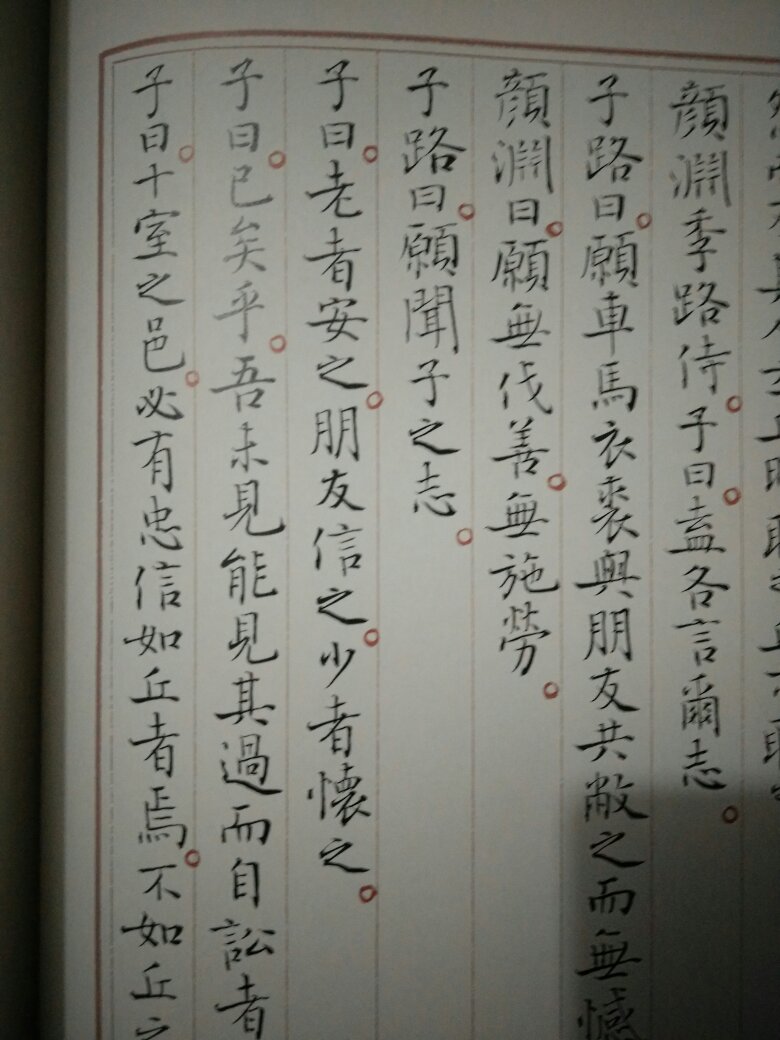 顔淵季路侍。子曰。盍各言爾志。
子路曰。願車馬衣裘與朋友共敝之而無憾
顔淵曰。願無伐善。無施勞。
子路曰。願聞子之志。
子曰。老者安之。朋友信之。少者懷之。
子曰。已矣乎。吾未見能見其過而自訟者
子曰。十室之邑。必有忠信如丘者焉。不如丘之